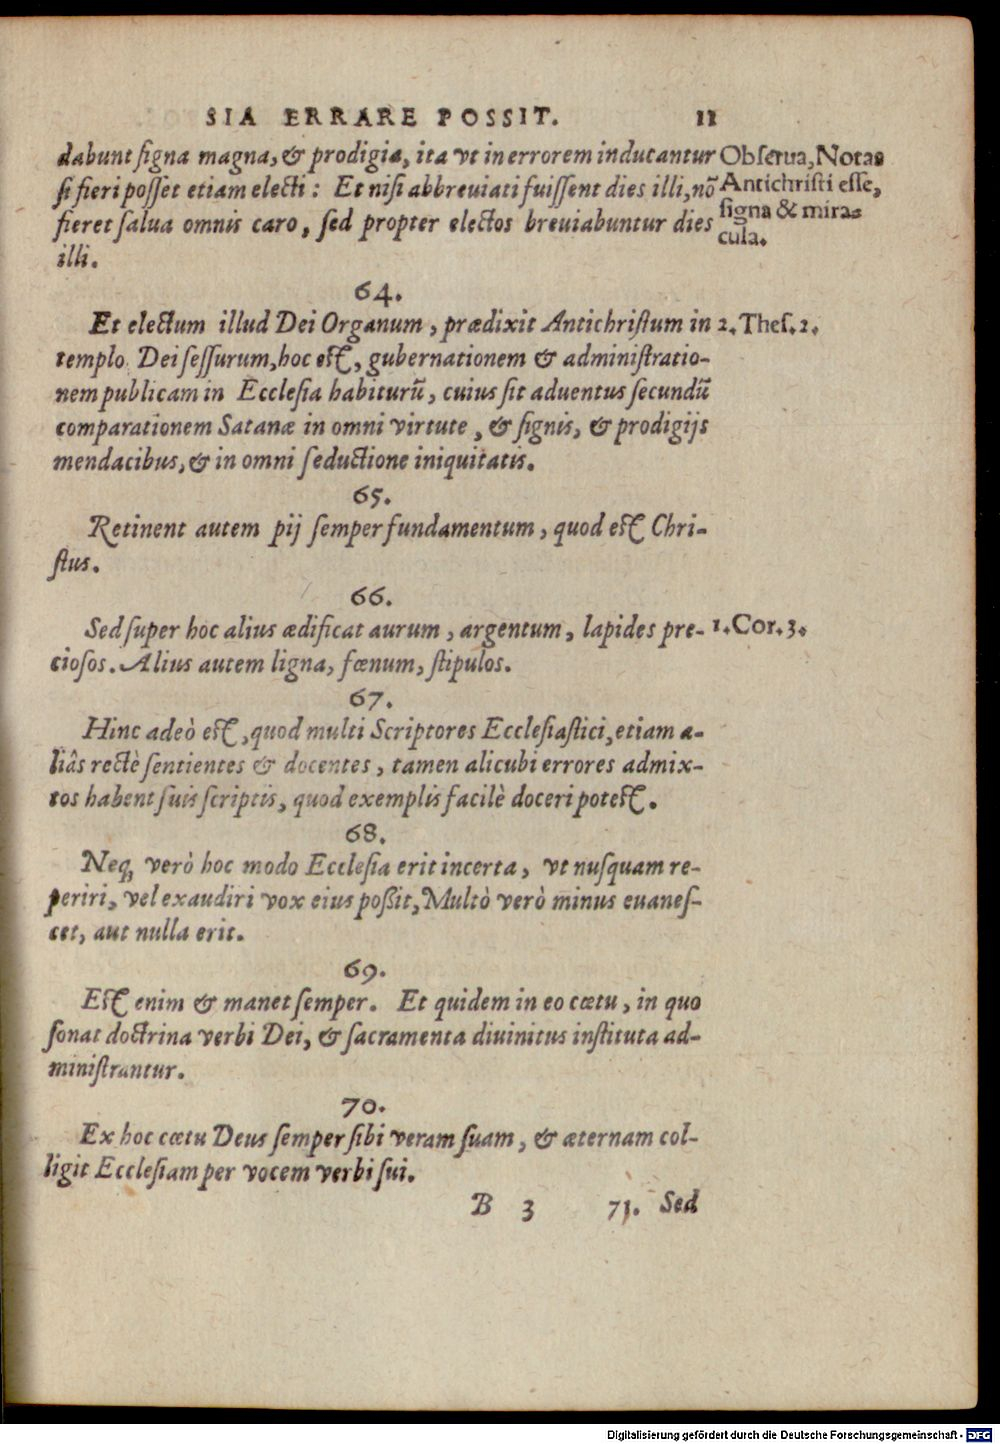 SIA ERRARE POSSIT. 11
dabunt signa magna, & prodigia, ita vt in errorem inducantur
si fieri posset etiam electi: Et nisi abbreuiati fuissent dies illi, nõ
fieret salua omnis caro, sed propter electos breuiabuntur dies
illi.
Obserua, Notas
Antichristi esse,
signa & mira-
cula.
64.
Et electum illud Dei Organum, prædixit Antichristum in
templo Dei sessurum, hoc est, gubernationem & administratio-
nem publicam in Ecclesia habiturũ, cuius sit aduentus secundũ
comparationem Satanæ in omni virtute, & signis, & prodigijs
mendacibus, & in omni seductione iniquitatis.
2. Thes. 2.
65.
Retinent autem pij semper fundamentum, quod est Chri-
stus.
66.
Sed super hoc alius ædificat aurum, argentum, lapides pre-
ciosos. Alius autem ligna, fœnum, stipulos.
1. Cor. 3.
67.
Hinc adeò est, quod multi Scriptores Ecclesiastici, etiam a-
liâs rectè sentientes & docentes, tamen alicubi errores admix-
tos habent suis scriptis, quod exemplis facilè doceri potest.
68.
Neq; verò hoc modo Ecclesia erit incerta, vt nusquam re-
periri, vel exaudiri vox eius poßit, Multò verò minus euanes-
cet, aut nulla erit.
69.
Est enim & manet semper. Et quidem in eo cœtu, in quo
sonat doctrina verbi Dei, & sacramenta diuinitus instituta ad-
ministrantur.
70.
Ex hoc cœtu Deus semper sibi veram suam, & æternam col-
ligit Ecclesiam per vocem verbi sui.
B 3 71. Sed
Digitalisierung gefördert durch die Deutsche Forschungsgemeinschaft - DFG